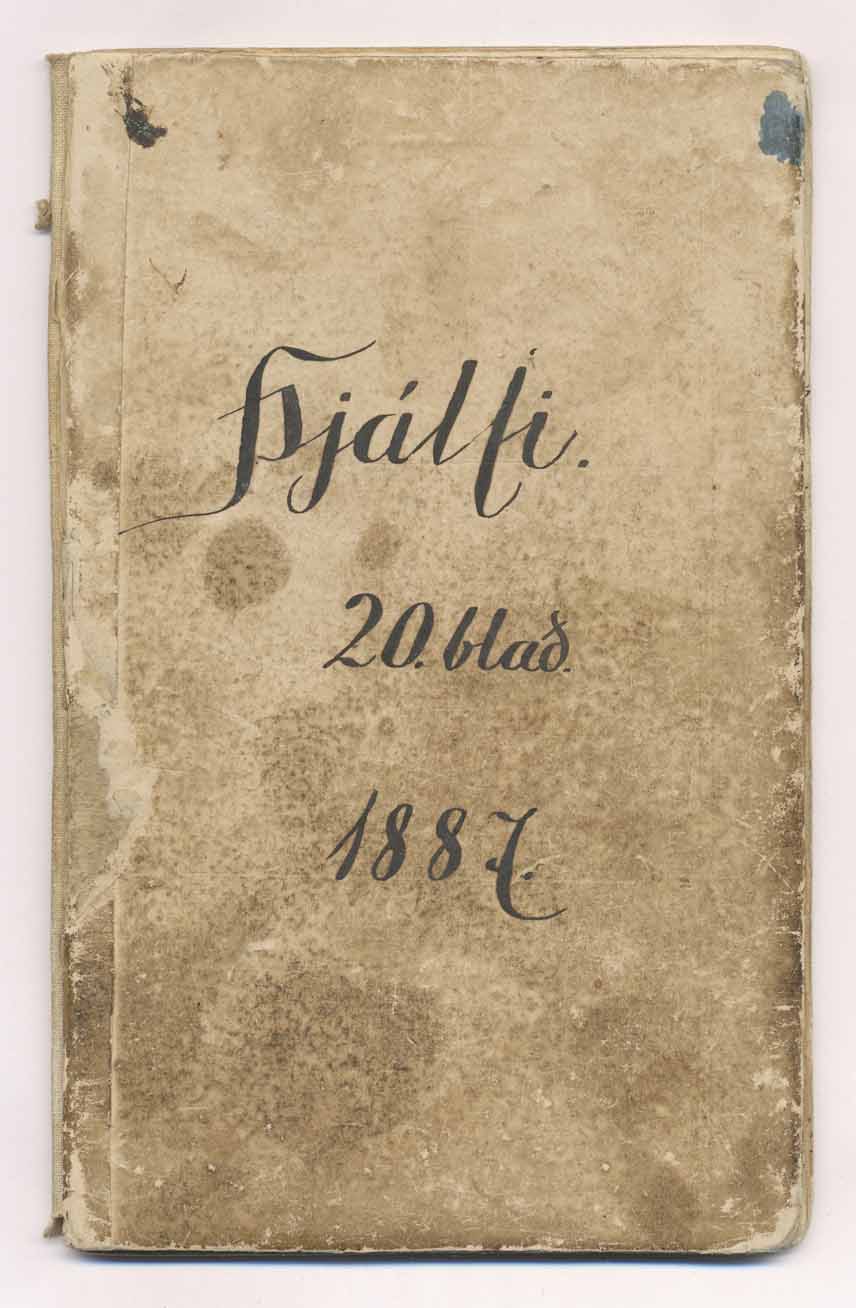 Þjálfi.
20. blað.
1887.